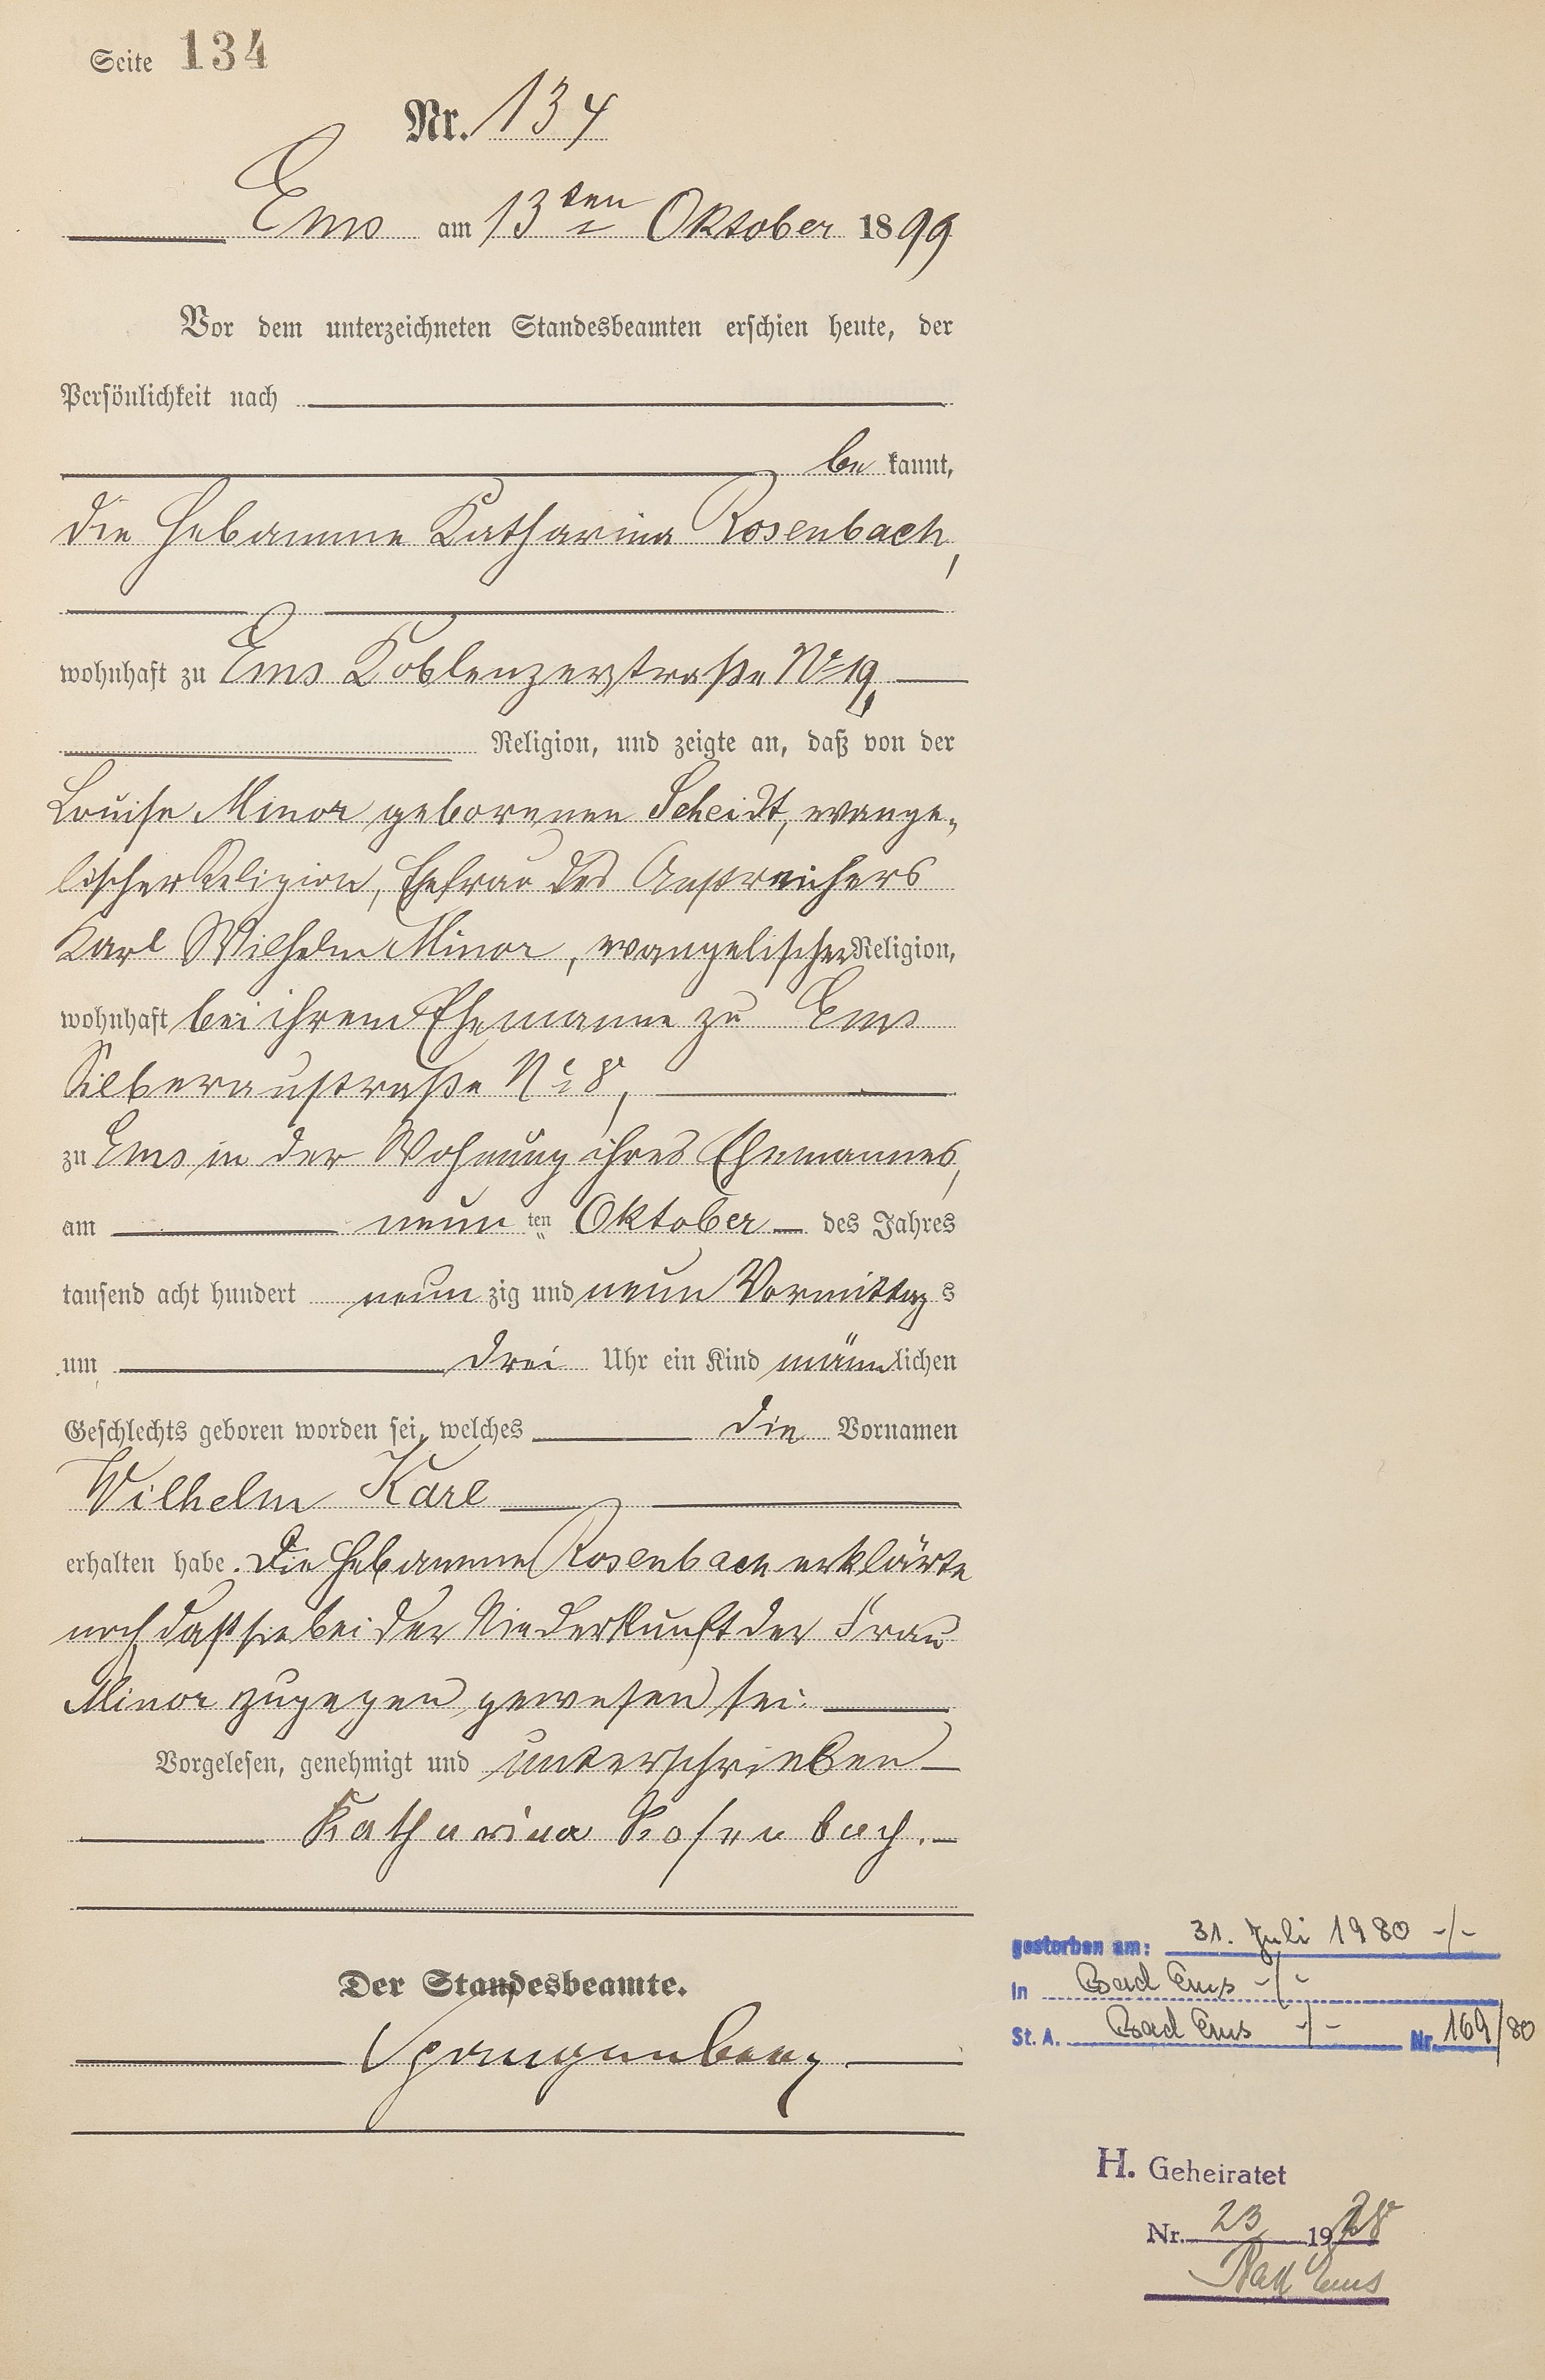 Seite 134
Nr. 134
Ems am 13ten Oktober 1899
Vor dem unterzeichneten Standesbeamten erschien heute, der
Persönlichkeit nach
be kannt,
die Hebamme Katharina Rosenbach,
wohnhaft zu Ems Koblenzerstraße No 19,
Religion, und zeigte an, daß von der
Louise Minor geborenen Scheidt, evange-
lischer Religion, Ehefrau des Anstreichers
Karl Wilhelm Minor, evangelischer Religion,
wohnhaft bei ihrem Ehemanne zu Ems
Silberaustraße No 8,
zu Ems in der Wohnung ihres Ehemannes,
am neun ten Oktober des Jahres
tausend acht hundert neun zig und neun Vormittag s
um drei Uhr ein Kind männlichen
Geschlechts geboren worden sei, welches die Vornamen
Wilhelm Karl
erhalten habe. Die Hebamme Rosenbach erklärte
noch daß sie bei der Niederkunft der Frau
Minor zugegen gewesen sei.
Vorgelesen, genehmigt und unterschrieben
Katharina Rosenbach.
Der Standesbeamte.
Spangenberg
gestorben am: 31. Juli 1980 -/-
in Bad Ems -/-
St. A. Bad Ems -/- Nr. 169/80
H. Geheiratet
Nr. 23 1928
Bad Ems